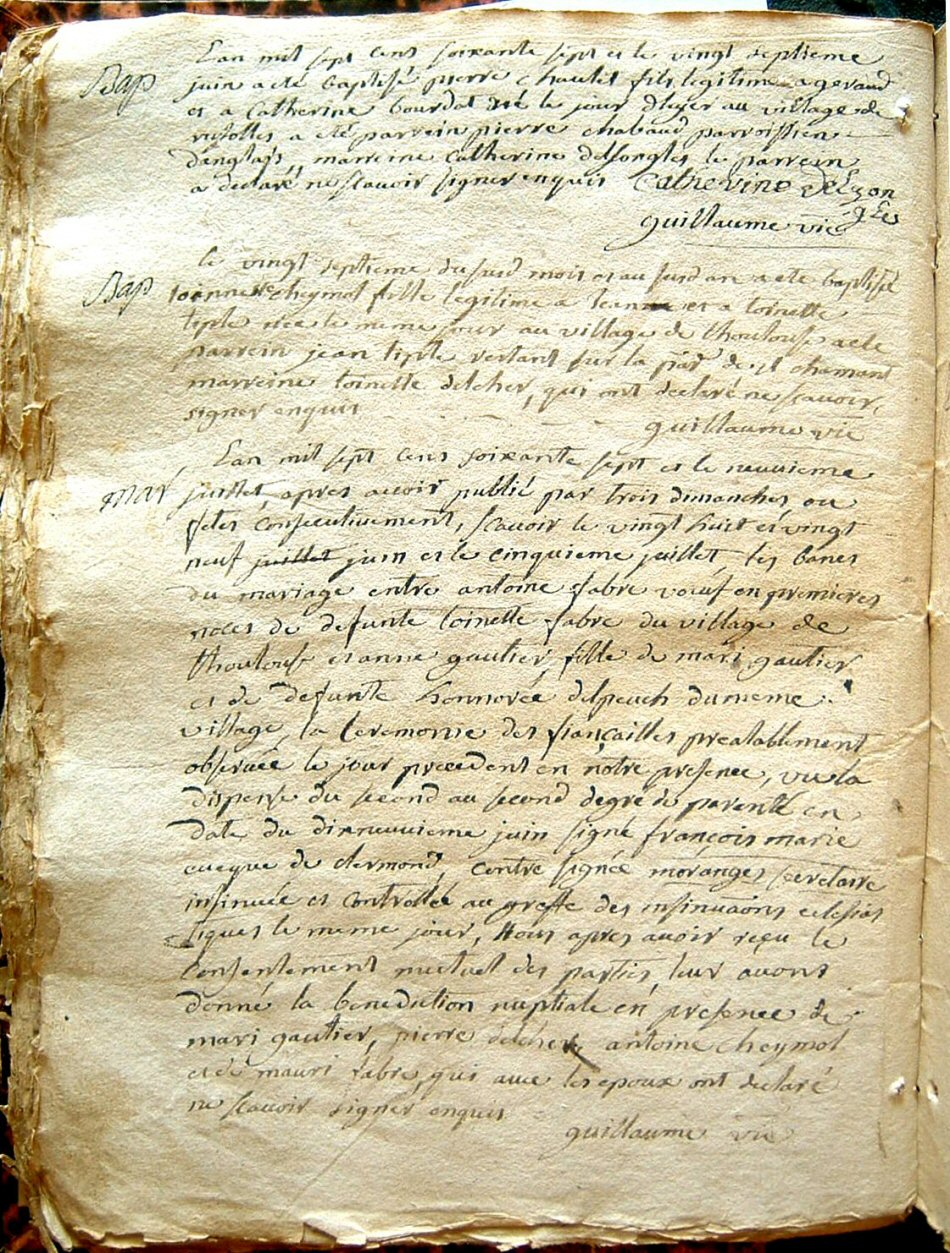 Bap
L'an mil sept cens soixante sept et le vingt septieme
juin a eté baptisé pierre chaulet fils legitime a geraud
et a Catherine bourdat né le jour d'hyer au village de
rufolles a eté parrein pierre chabaud parroissien
d'anglars, marreine Catherine delsongles le parrein
a declaré ne scavoir signer enquis Catherine delzon
gles
guillaume vié
Bap
le vingt septieme du susd mois et au susd an a eté baptisé
toinnette cheymol fille legitime a jean et a toinette
tiple née le meme jour au village de thoulouse a eté
parrein jean tiple restant sur la par de st chamant
marreine toinette delcher, qui ont declaré ne scavoir
signer enquis
guillaume vié
mar
L'an mil sept cens soixante sept et le neuvieme
juillet, apres avoir publié par trois dimanches ou
fetes consecutivement, scavoir le vingt huit et vingt
neuf juillet juin et le cinquieme juillet, les bancs
du mariage entre antoine fabre voeuf en premieres
noces de defunte toinette fabre du village de
thoulouse et anne gautier fille de mari gautier
et de defunte honnorée delpeuch du meme
village, la ceremonie des fiançailles prealablement
observée le jour precedent en nôtre presence, vu la
dispense du second au second degré de parenté en
date du dixneuvieme juin signé françois marie
eveque de clermond, contre signée moranges secretaire
insinuée et controllée au greffe des insinuaons eclesias
tiques le meme jour, Nous apres avoir reçu le
consentement mutuel des parties, leur avons
donné la benediction nuptiale en presence de
mari gautier, pierre delcher antoine cheymol
et de mauri fabre, qui avec les epoux ont declaré
ne scavoir signer enquis
guillaume vié